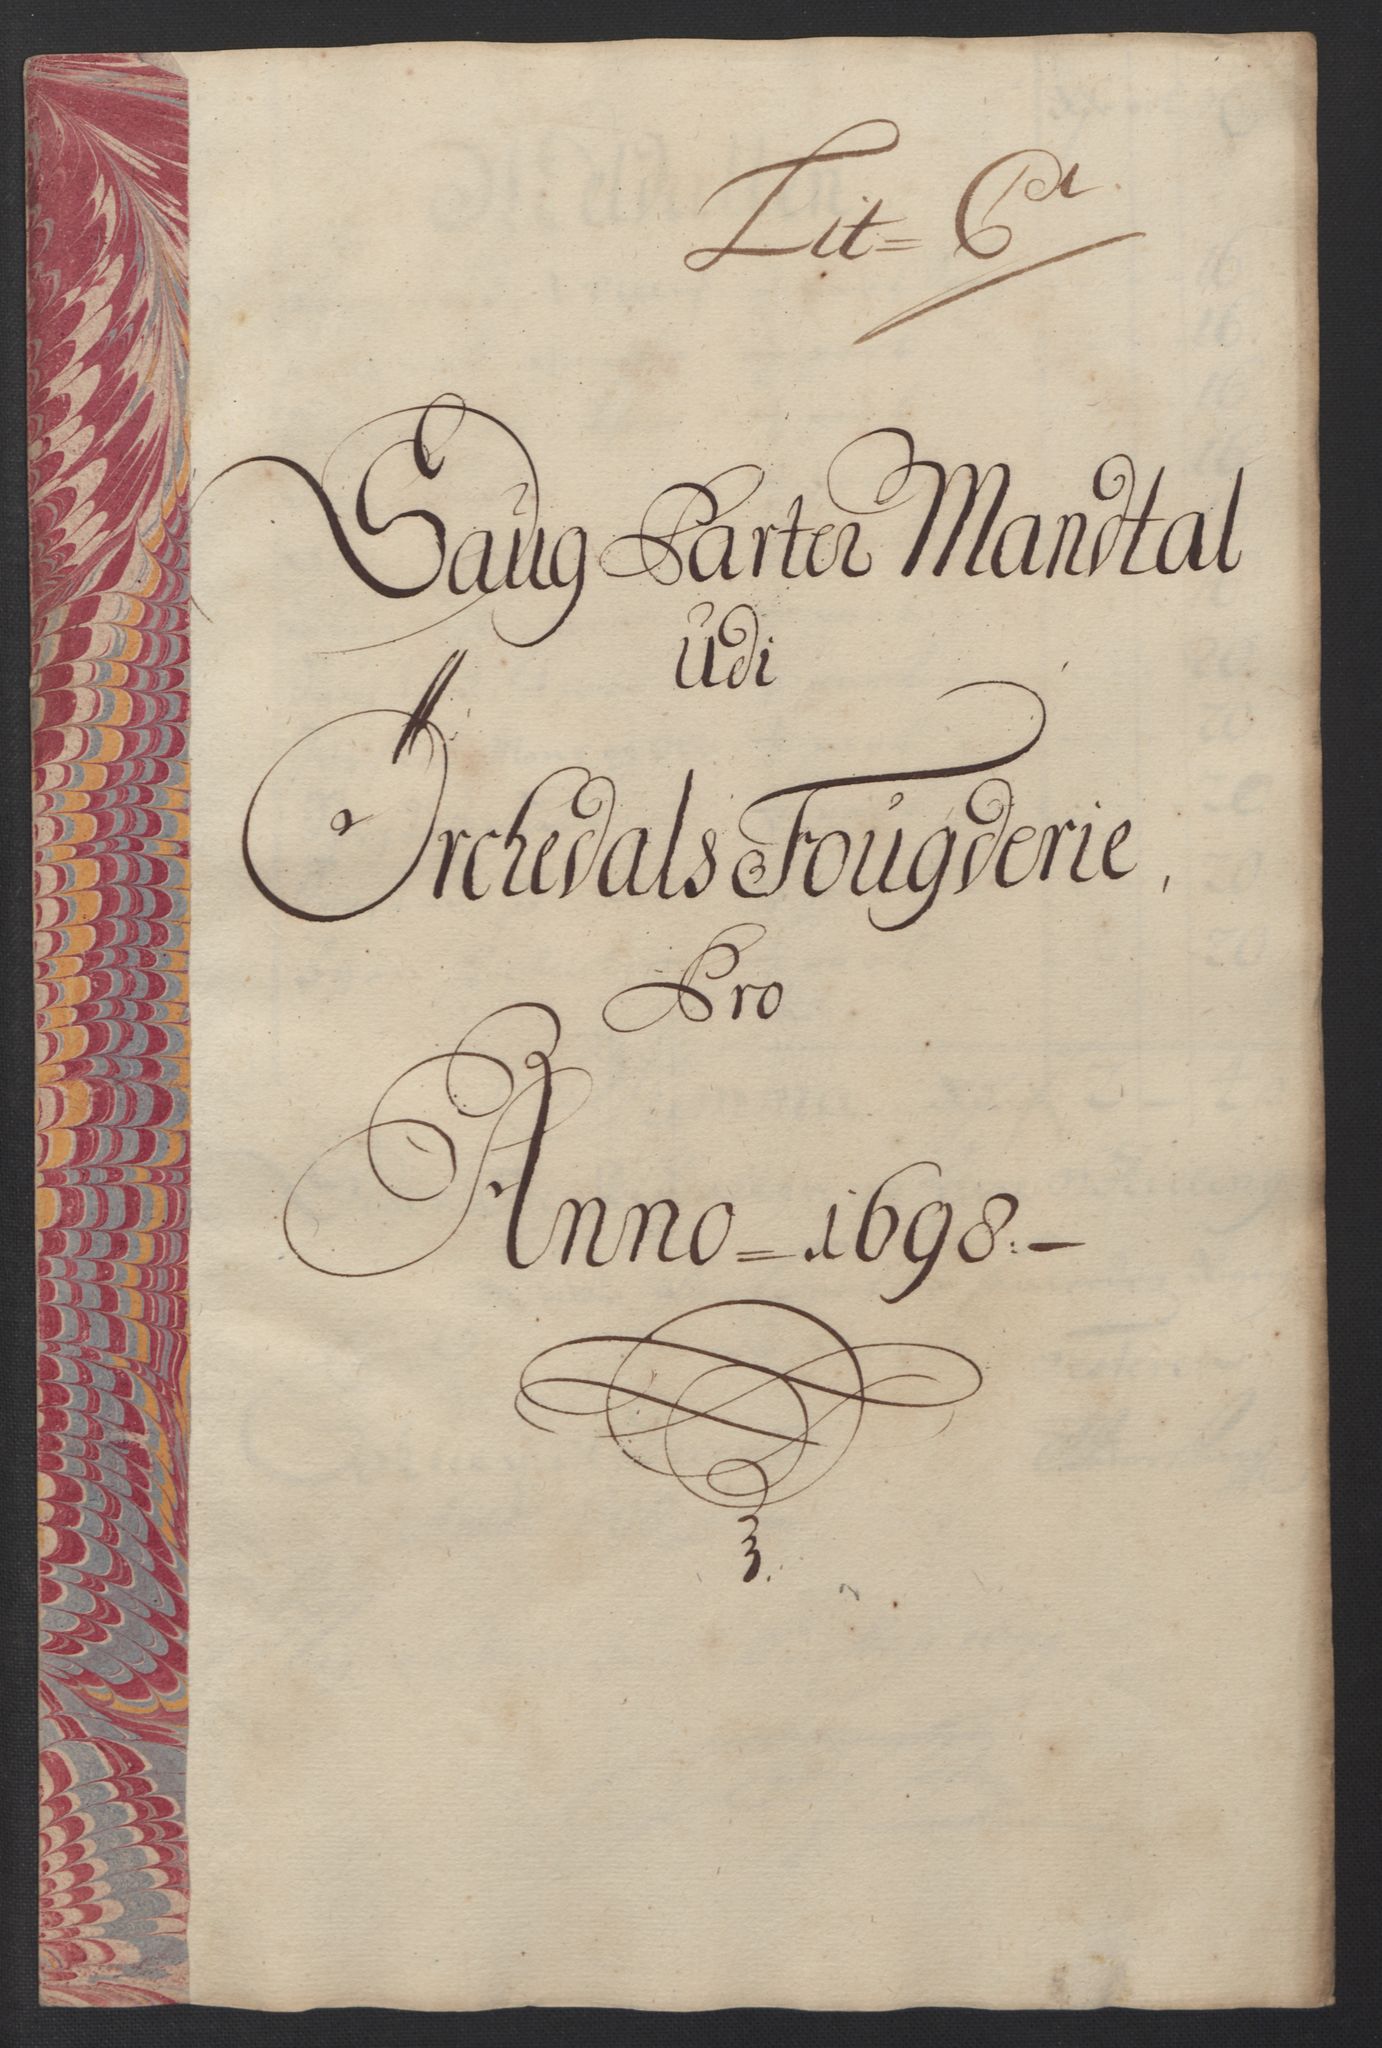 Lit= C a
Saug Parter Mandtal
Udi
Orchedals Fougderie,
Pro
Anno=1698.-
3.